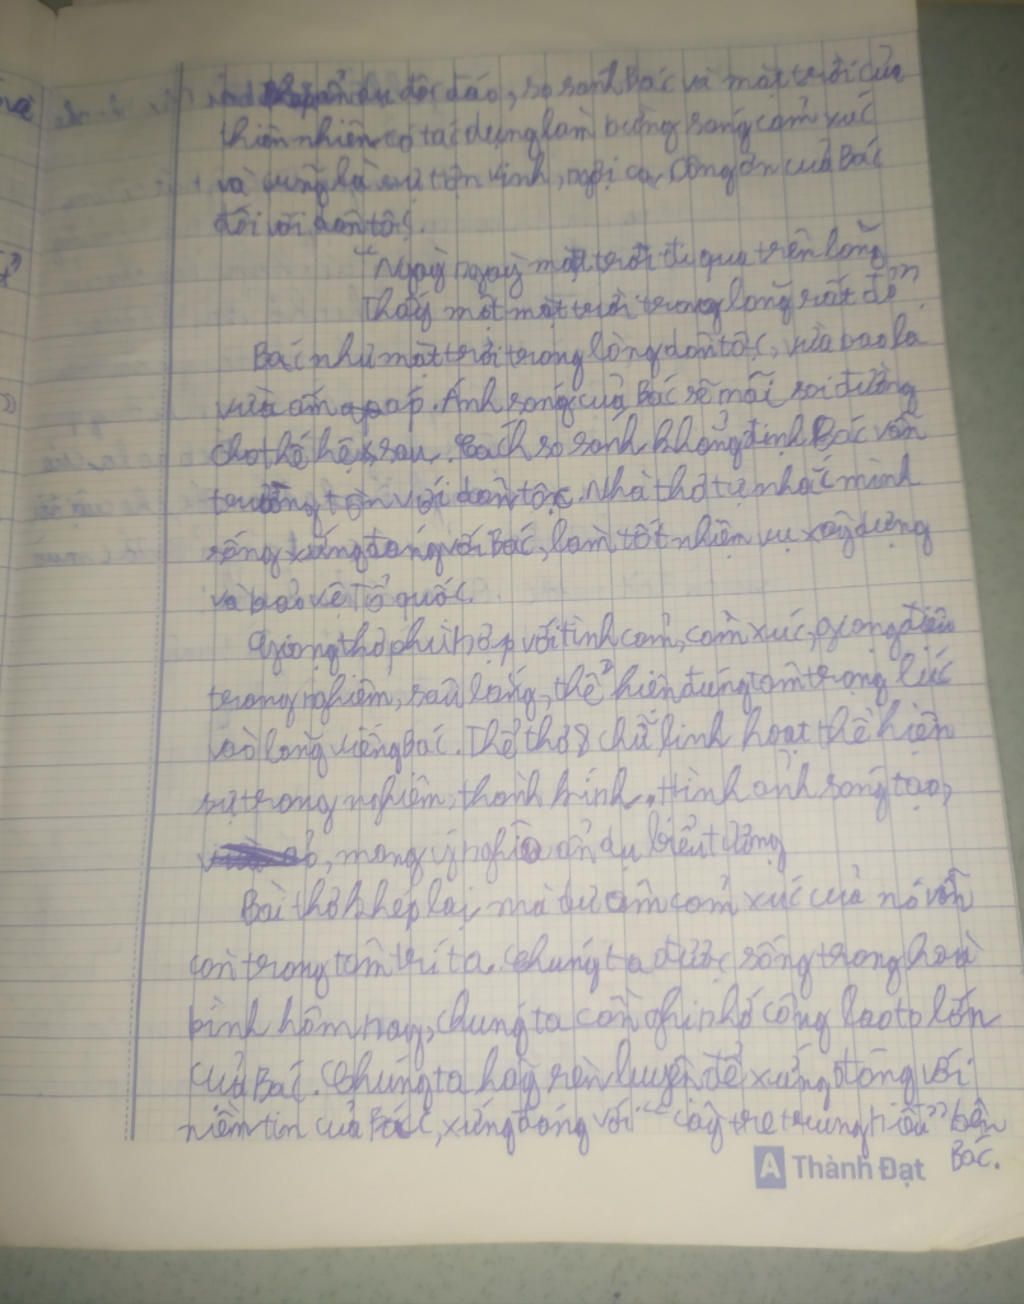 ẩn dụ độc đáo, so sánh Bác và mặt trời của
thiên nhiên có tác dụng làm bừng sáng cảm xúc
và cũng là sự tôn vinh, ngợi ca công ơn của Bác
đối với dân tộc.
"Ngày ngày mặt trời đi qua trên lăng
Thấy một mặt trời trong lăng rất đỏ".
Bác như mặt trời trong lòng dân tộc, vừa bao la
vừa ấm áp. Ánh sáng của Bác sẽ mãi soi đường
cho thế hệ sau. Cách so sánh khẳng định Bác vẫn
trường tồn với dân tộc. Nhà thơ tự nhắc mình
sống xứng đáng với Bác, làm tốt nhiệm vụ xây dựng
và bảo vệ Tổ quốc.
Giọng thơ phù hợp với tình cảm, cảm xúc, giọng điệu
trang nghiêm, sâu lắng, thể hiện đúng tâm trạng lúc
vào lăng viếng Bác. Thể thơ 8 chữ linh hoạt thể hiện
sự trang nghiêm, thành kính. Hình ảnh sáng tạo,
, mang ý nghĩa ẩn dụ biểu tượng
Bài thơ khép lại, mà dư âm cảm xúc của nó vẫn
còn trong tâm trí ta. Chúng ta được sống trong hoà
bình hôm nay, chúng ta cần ghi nhớ công lao to lớn
của Bác. Chúng ta hãy rèn luyện để xứng đáng với
niềm tin của Bác, xứng đáng với "cây tre trung hiếu" bên
Bác.
A Thành Đạt